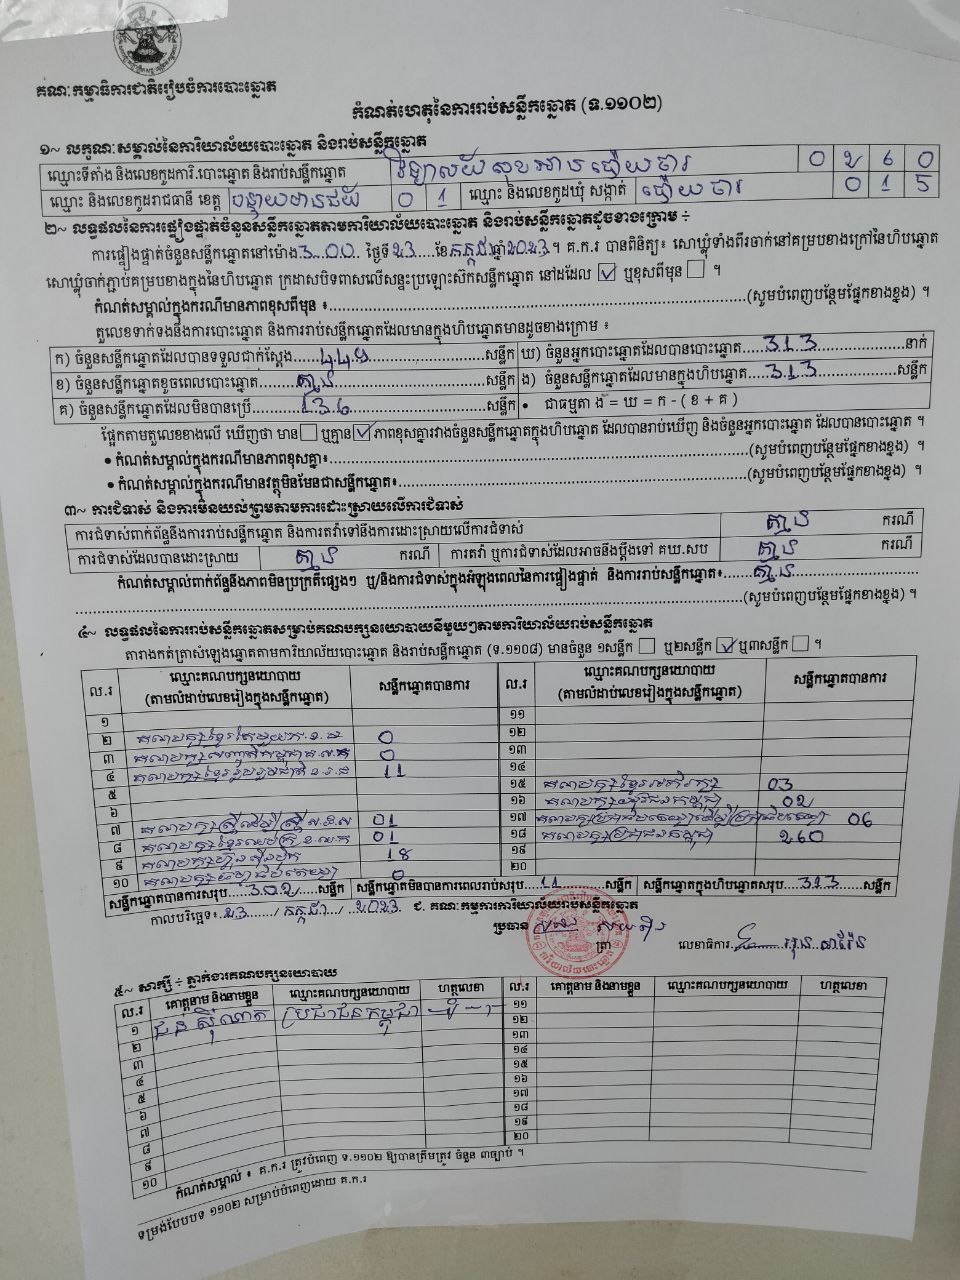 គណៈកម្មាធិការជាតិរៀបចំការបោះឆ្នោត
កំណត់ហេតុនៃការរាប់សន្លឹកឆ្នោត (ទ.១១០២)
១~ លក្ខណៈសម្គាល់នៃការិយាល័យបោះឆ្នោត និងរាប់សន្លឹកឆ្នោត
ឈ្មោះទីតាំង និងលេខកូដការិ.បោះឆ្នោត និងរាប់សន្លឹកឆ្នោត វិទ្យាល័យ 0 2 6 0
ឈ្មោះ និងលេខកូដរាជធានី ខេត្ត បន្ទាយមានជ័យ 0 1 ឈ្មោះ និងលេខកូដឃុំ សង្កាត់ 0 1 5
២~ លទ្ធផលនៃការផ្ទៀងផ្ទាត់ចំនួនសន្លឹកឆ្នោតតាមការិយាល័យបោះឆ្នោត និងរាប់សន្លឹកឆ្នោតដូចខាងក្រោម ÷
ការផ្ទៀងផ្ទាត់ចំនួនសន្លឹកឆ្នោតនៅម៉ោង 3.00 ថ្ងៃទី 23 ខែ កក្កដា ឆ្នាំ 2023។ គ.ក.រ បានពិនិត្យ៖ សោឃ្លុំទាំងពីរចាក់នៅគម្របខាងក្រៅនៃហិបឆ្នោត
សោឃ្លុំចាក់ភ្ជាប់គម្របខាងក្នុងនៃហិបឆ្នោត ក្រដាសបិទពាសលើសន្ទះប្រឡោះស៊កសន្លឹកឆ្នោត នៅដដែល ☑ ឬខុសពីមុន ☐ ។
កំណត់សម្គាល់ក្នុងករណីមានភាពខុសពីមុន ៖ (សូមបំពេញបន្ថែមផ្នែកខាងខ្នង) ។
តួលេខទាក់ទងនឹងការបោះឆ្នោត និងការរាប់សន្លឹកឆ្នោតដែលមានក្នុងហិបឆ្នោតមានដូចខាងក្រោម ៖
ក) ចំនួនសន្លឹកឆ្នោតដែលបានទទួលជាក់ស្តែង 449 សន្លឹក ឃ) ចំនួនអ្នកបោះឆ្នោតដែលបានបោះឆ្នោត 313 នាក់
ខ) ចំនួនសន្លឹកឆ្នោតខូចពេលបោះឆ្នោត គ្មាន សន្លឹក ង) ចំនួនសន្លឹកឆ្នោតដែលមានក្នុងហិបឆ្នោត 313 សន្លឹក
គ) ចំនួនសន្លឹកឆ្នោតដែលមិនបានប្រើ 136 សន្លឹក • ជាធម្មតា ង = ឃ = ក - ( ខ + គ )
ផ្អែកតាមតួលេខខាងលើ ឃើញថា មាន ☐ ឬគ្មាន ☑ ភាពខុសគ្នារវាងចំនួនសន្លឹកឆ្នោតក្នុងហិបឆ្នោត ដែលបានរាប់ឃើញ និងចំនួនអ្នកបោះឆ្នោត ដែលបានបោះឆ្នោត ។
• កំណត់សម្គាល់ក្នុងករណីមានភាពខុសគ្នា៖ (សូមបំពេញបន្ថែមផ្នែកខាងខ្នង) ។
• កំណត់សម្គាល់ក្នុងករណីមានវត្ថុមិនមែនជាសន្លឹកឆ្នោត៖ (សូមបំពេញបន្ថែមផ្នែកខាងខ្នង) ។
៣~ ការជំទាស់ និងការមិនយល់ព្រមតាមការដោះស្រាយលើការជំទាស់
ការជំទាស់ពាក់ព័ន្ធនឹងការរាប់សន្លឹកឆ្នោត និងការតវ៉ាទៅនឹងការដោះស្រាយលើការជំទាស់ គ្មាន ករណី
ការជំទាស់ដែលបានដោះស្រាយ គ្មាន ករណី ការតវ៉ា ឬការជំទាស់ដែលអាចនឹងប្តឹងទៅ គឃ.សប គ្មាន ករណី
កំណត់សម្គាល់ពាក់ព័ន្ធនឹងភាពមិនប្រក្រតីផ្សេងៗ ឬ/និងការជំទាស់ក្នុងអំឡុងពេលនៃការផ្ទៀងផ្ទាត់ និងការរាប់សន្លឹកឆ្នោត៖ គ្មាន
(សូមបំពេញបន្ថែមផ្នែកខាងខ្នង) ។
៤~ លទ្ធផលនៃការរាប់សន្លឹកឆ្នោតសម្រាប់គណបក្សនយោបាយនីមួយៗតាមការិយាល័យរាប់សន្លឹកឆ្នោត
តារាងកត់ត្រាសំឡេងឆ្នោតតាមការិយាល័យបោះឆ្នោត និងរាប់សន្លឹកឆ្នោត (ទ.១១០៨) មានចំនួន ១សន្លឹក ☐ ឬ២សន្លឹក ☑ ឬ៣សន្លឹក ☐ ។
ល.រ ឈ្មោះគណបក្សនយោបាយ (តាមលំដាប់លេខរៀងក្នុងសន្លឹកឆ្នោត) សន្លឹកឆ្នោតបានការ ល.រ ឈ្មោះគណបក្សនយោបាយ (តាមលំដាប់លេខរៀងក្នុងសន្លឹកឆ្នោត) សន្លឹកឆ្នោតបានការ
១ ១១
២ 0 ១២
៣ 0 ១៣
៤ 11 ១៤
៥ ១៥ គណបក្សខ្មែរអភិរក្ស 03
៦ ១៦ គណបក្សយុវជនកម្ពុជា 02
៧ គណបក្សស្ត្រីដើម្បីស្ត្រី 01 ១៧ 06
៨ 01 ១៨ គណបក្សប្រជាជនកម្ពុជា 260
៩ គណបក្សហ្វ៊ុនស៊ិនប៉ិច 18 ១៩
១០ 0 ២០
សន្លឹកឆ្នោតបានការសរុប 302 សន្លឹក សន្លឹកឆ្នោតមិនបានការពេលរាប់សរុប 11 សន្លឹក សន្លឹកឆ្នោតក្នុងហិបឆ្នោតសរុប 313 សន្លឹក
កាលបរិច្ឆេទ៖ 23 / កក្កដា / 2023 ជ. គណៈកម្មការការិយាល័យរាប់សន្លឹកឆ្នោត
ប្រធាន ត្រា លេខាធិការ
៥~ សាក្សី ÷ ភ្នាក់ងារគណបក្សនយោបាយ
ល.រ គោត្តនាម និងនាមខ្លួន ឈ្មោះគណបក្សនយោបាយ ហត្ថលេខា ល.រ គោត្តនាម និងនាមខ្លួន ឈ្មោះគណបក្សនយោបាយ ហត្ថលេខា
១ ប្រជាជនកម្ពុជា ១១
២ ១២
៣ ១៣
៤ ១៤
៥ ១៥
៦ ១៦
៧ ១៧
៨ ១៨
៩ ១៩
១០ ២០
កំណត់សម្គាល់ ៖ គ.ក.រ ត្រូវបំពេញ ទ.១១០២ ឱ្យបានត្រឹមត្រូវ ចំនួន ៣ច្បាប់ ។
ទម្រង់បែបបទ ១១០២ សម្រាប់បំពេញដោយ គ.ក.រ